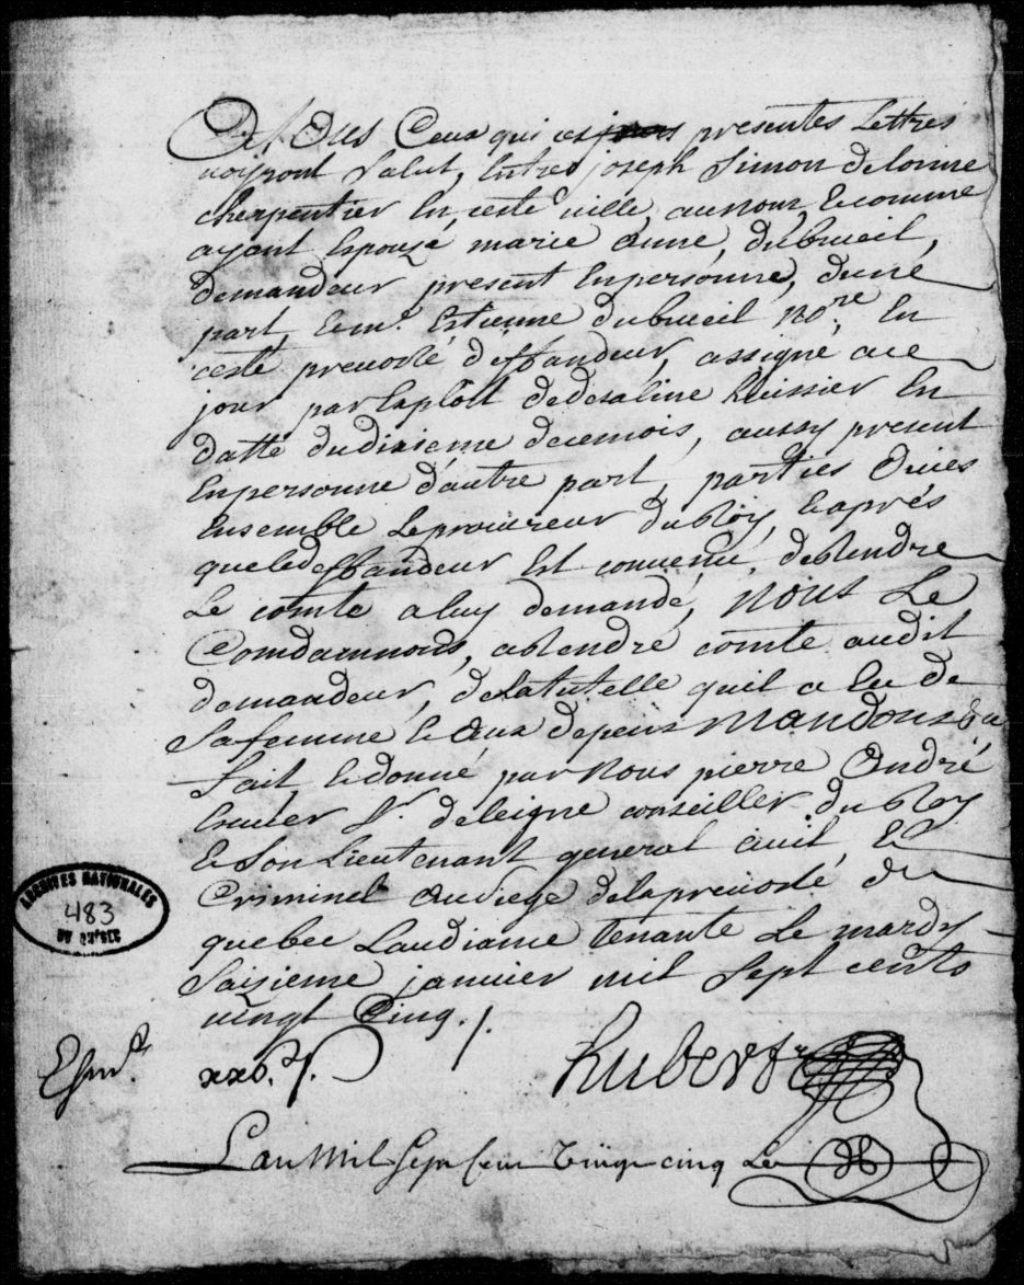 A Tous Ceux qui ces presentes Lettres
voiront Salut, Entre joseph Simon delorme
cherpentier En ceste ville, au nom, Et comme
ayant Espouzé marie anne, dubrueil,
demandeur present Enpersonne, dune
part, Et me. Estienne dubrueil nore, En
ceste prevosté deffandeur, assigné a ce
jour par Exploit dedesaline huissier En
datte dudixieme decemois, aussy present
Enpersonne d'autre part, parties Ouies
Ensemble Leprocureur duRoy, Et aprés
queledeffandeur Est convenu, deRendre
Le comte a luy demandé, Nous Le
Comdamnons, aRendre comte audit
demandeur, delatutelle quil a Eu de
Safemme Et aux depens Mandons &a
fait, Et donné par Nous pierre André
Ecuier Sr. deleigne conseiller du Roy
Et Son Lieutenant general civil, Et
Criminel au siege delaprevosté de
quebec Laudiance tenante Le mardy
Saizieme janvier mil Sept cents
vingt Cinq./.
xxs.
hubert
Lan Mil Sept Cent Vingt cinq Le
ARCHIVES NATIONALES
483
DU QUÉBEC